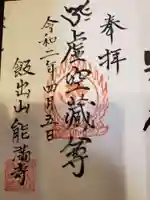 奉拝
虚空蔵尊
令和二年四月五日
飯出山 能満寺